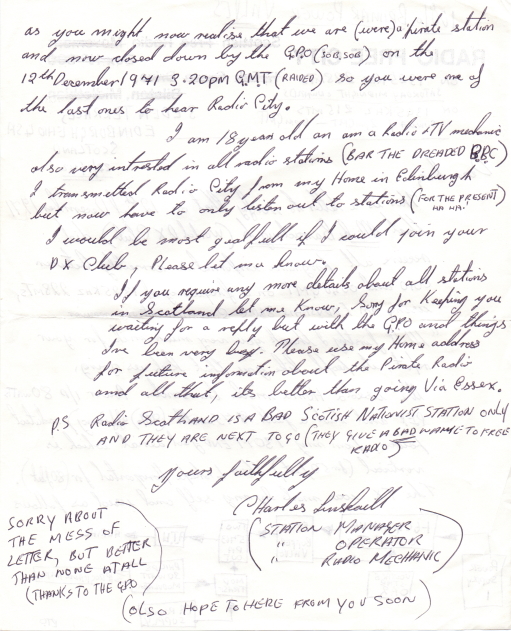 as you might now realise that we are (were) a pirate station
and now closed down by the GPO (SOB, SOB) on the
12th December 1971 3.20PM G.M.T (RAIDED) so you were one of
the last ones to hear Radio City.
I am 18 year old an am a Radio & TV mechanic
also very intrested in all radio stations (BAR THE DREADED BBC)
I transmitted Radio City from my Home in Edinburgh
but now have to only listen out to stations (FOR THE PRESENT
HA HA!)
I would be most greatfull if I could join your
DX Club, Please let me know.
If you require any more details about all stations
in Scotland let me Know, Sorry for Keeping you
waiting for a reply but with the G.P.O and things
I've been very busy. Please use my Home address
for future information about the Pirate Radio
and all that, its better than going Via Essex.
P.S Radio Scotland IS A BAD SCOTISH NATIONIST STATION ONLY
AND THEY ARE NEXT TO GO (THEY GIVE A BAD NAME TO FREE
RADIO)
Yours faithfully
Charles
(STATION MANAGER
" OPERATOR
" RADIO MECHANIC)
SORRY ABOUT
THE MESS OF
LETTER, BUT BETTER
THAN NONE AT ALL
(THANKS TO THE GPO)
(OLSO HOPE TO HERE FROM YOU SOON)